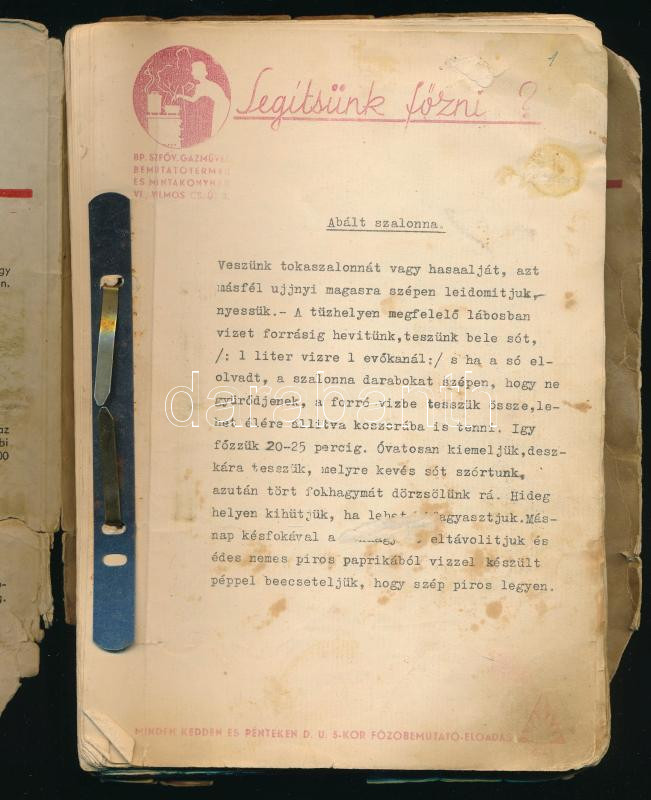 1
Segítsünk főzni ?
BP. SZFŐV. GÁZMŰVEI
BEMUTATÓTERMEI
ÉS MINTAKONYHÁI
VI., VILMOS CS. ÚT 3.
Abált szalonna.
Veszünk tokaszalonnát vagy hasaalját, azt
másfél ujjnyi magasra szépen leidomitjuk,-
nyessük.- A tüzhelyen megfelelő lábosban
vizet forrásig hevitünk,teszünk bele sót,
/: 1 liter vizre 1 evőkanál:/ s ha a só el-
olvadt, a szalonna darabokat szépen, hogy ne
gyürődjenek, a forró vizbe tesszük össze,le-
het élére állitva koszorúba is tenni. Igy
főzzük 20-25 percig. Óvatosan kiemeljük,desz-
kára tesszük, melyre kevés sót szórtunk,
azután tört fokhagymát dörzsölünk rá. Hideg
helyen kihütjük, ha lehet fagyasztjuk.Más-
nap késfokával a eltávolitjuk és
édes nemes piros paprikából vizzel készült
péppel beecseteljük, hogy szép piros legyen.
MINDEN KEDDEN ÉS PÉNTEKEN D. U. 5-KOR FŐZŐBEMUTATÓ-ELŐADÁS
gy
n.
az
bi
00
darabanth